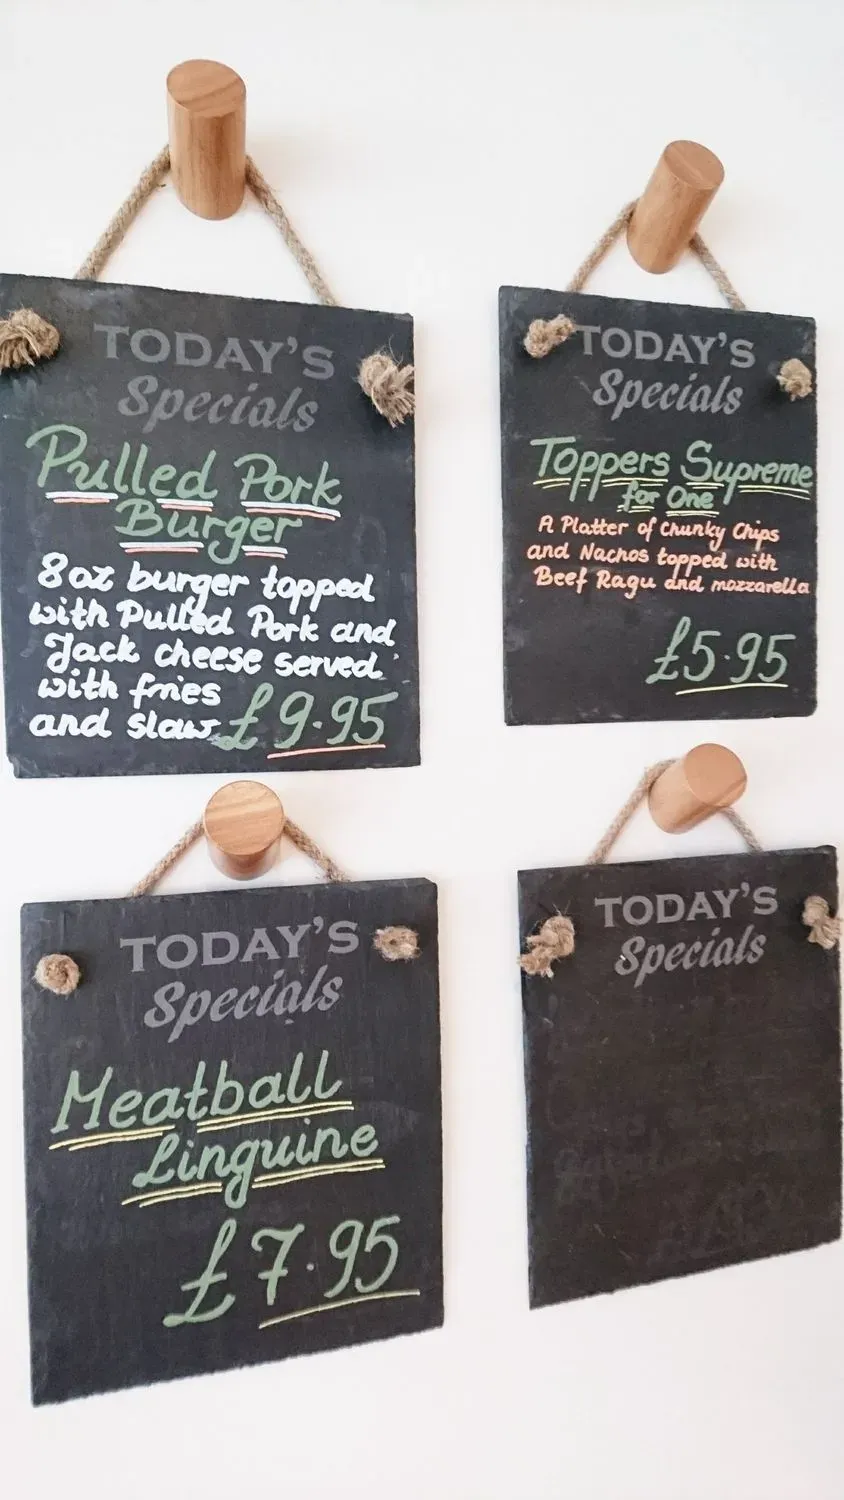 TODAY'S
Specials
Pulled Pork
Burger
8oz burger topped
with Pulled Pork and
Jack cheese served
with fries
and slaw £9.95
TODAY'S
Specials
Toppers Supreme
for One
A Platter of Chunky Chips
and Nachos topped with
Beef Ragu and mozzarella
£5.95
TODAY'S
Specials
Meatball
Linguine
£7.95
TODAY'S
Specials